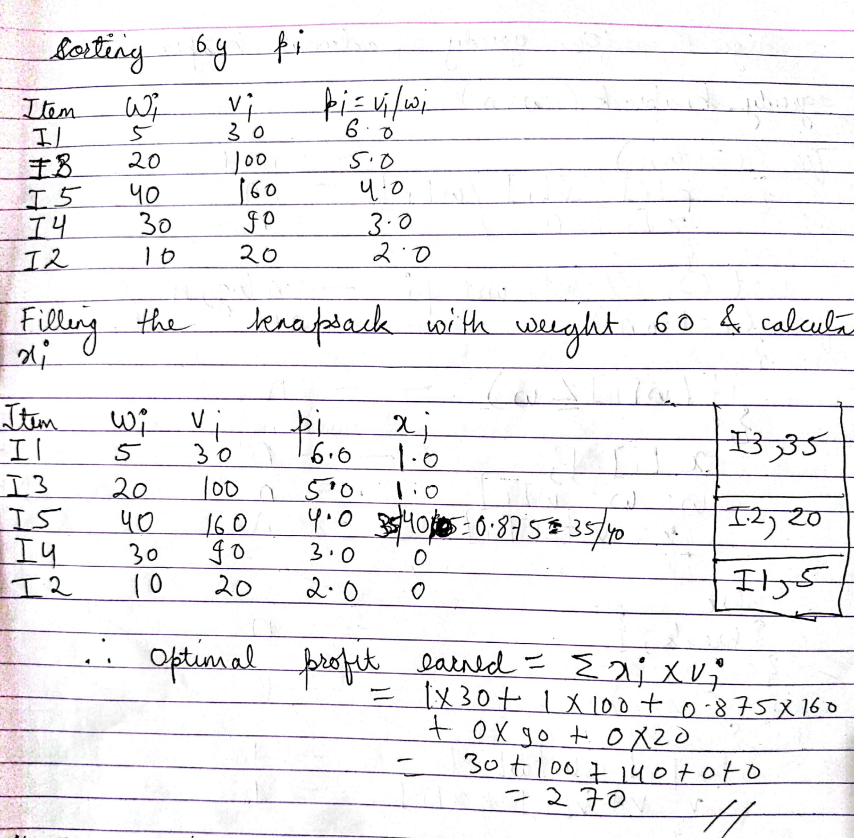 Sorting by pi
Item wi vi pi = vi/wi
I1 5 30 6.0
I3 20 100 5.0
I5 40 160 4.0
I4 30 90 3.0
I2 10 20 2.0
Filling the knapsack with weight 60 & calcula
xi
Item wi vi pi xi
I1 5 30 6.0 1.0
I3 20 100 5.0 1.0
I5 40 160 4.0 35/40 = 0.875 = 35/40
I4 30 90 3.0 0
I2 10 20 2.0 0
I3, 35
I2, 20
I1, 5
∴ Optimal profit earned = Σ xi x vi
= 1 x 30 + 1 x 100 + 0.875 x 160
+ 0 x 90 + 0 x 20
= 30 + 100 + 140 + 0 + 0
= 270 //